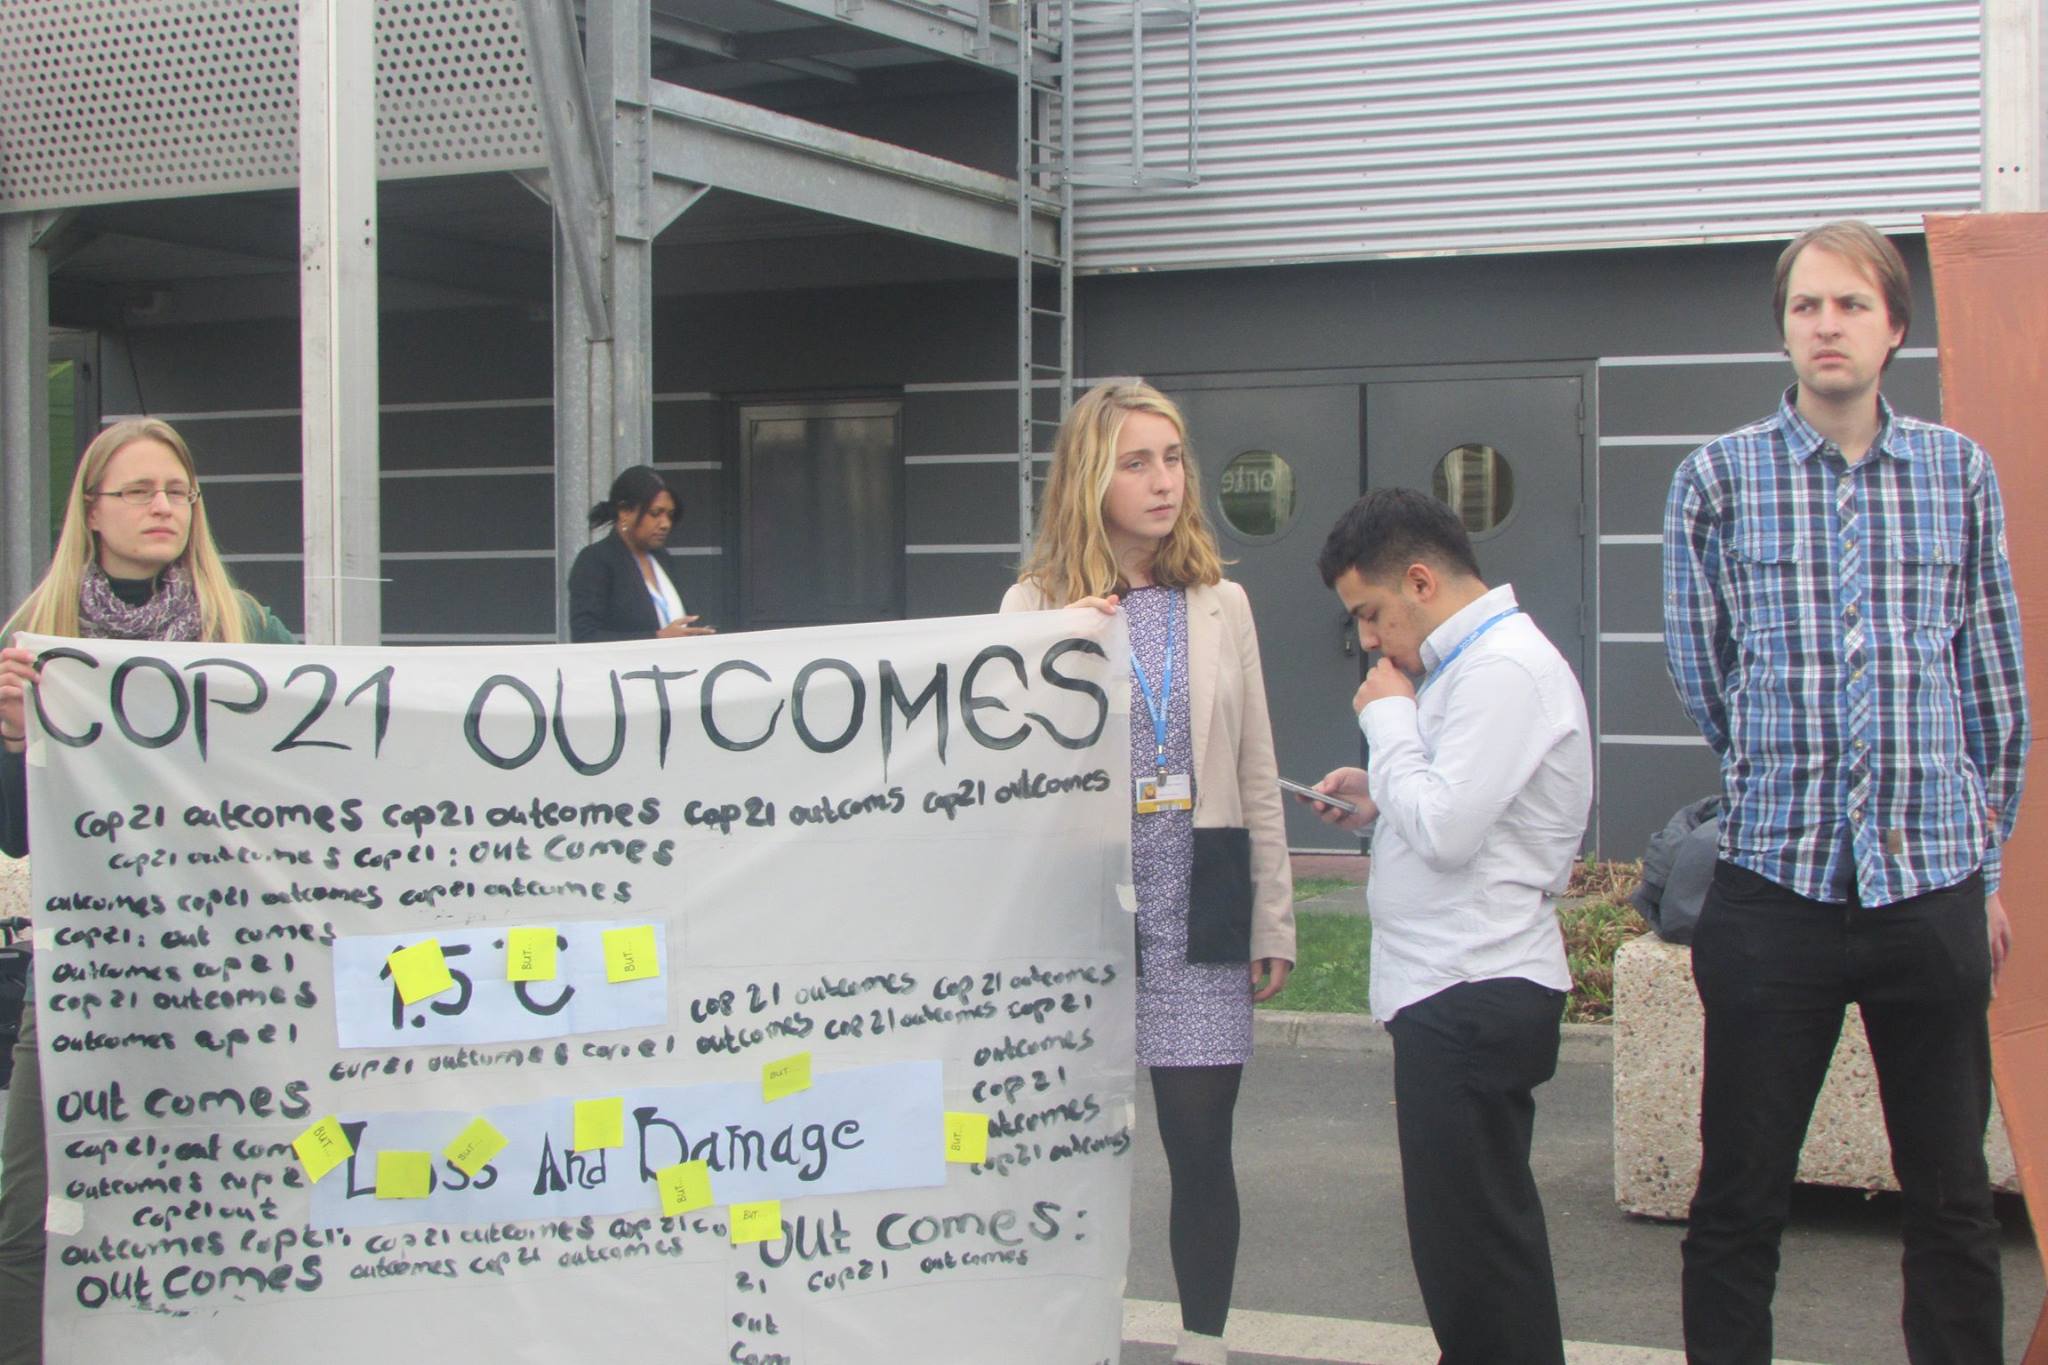 COP21 OUTCOMES
cop21 outcomes cop21 outcomes cop21 outcoms cop21 outcomes
cop21 outcomes cop21: out comes
outcomes cop21 outcomes cop21 outcomes
cop21: out comes
outcomes cop21
cop21 outcomes
outcomes cop21
1.5°C
BUT...
BUT...
cop 21 outcomes cop 21 outcomes
outcomes cop 21 outcomes cop 21
outcomes
cop 21
outcomes
cop21 outcomes
cop21 outcomes cop21
out comes
cop21: out com
outcomes cop 2
cop21 out
outcomes cop21:
out comes
Loss And Damage
BUT...
BUT...
BUT...
BUT...
BUT...
BUT...
cop21 outcomes cop21 co
outcomes cop21 outcomes
out comes:
21 cop21 outcomes
out
com